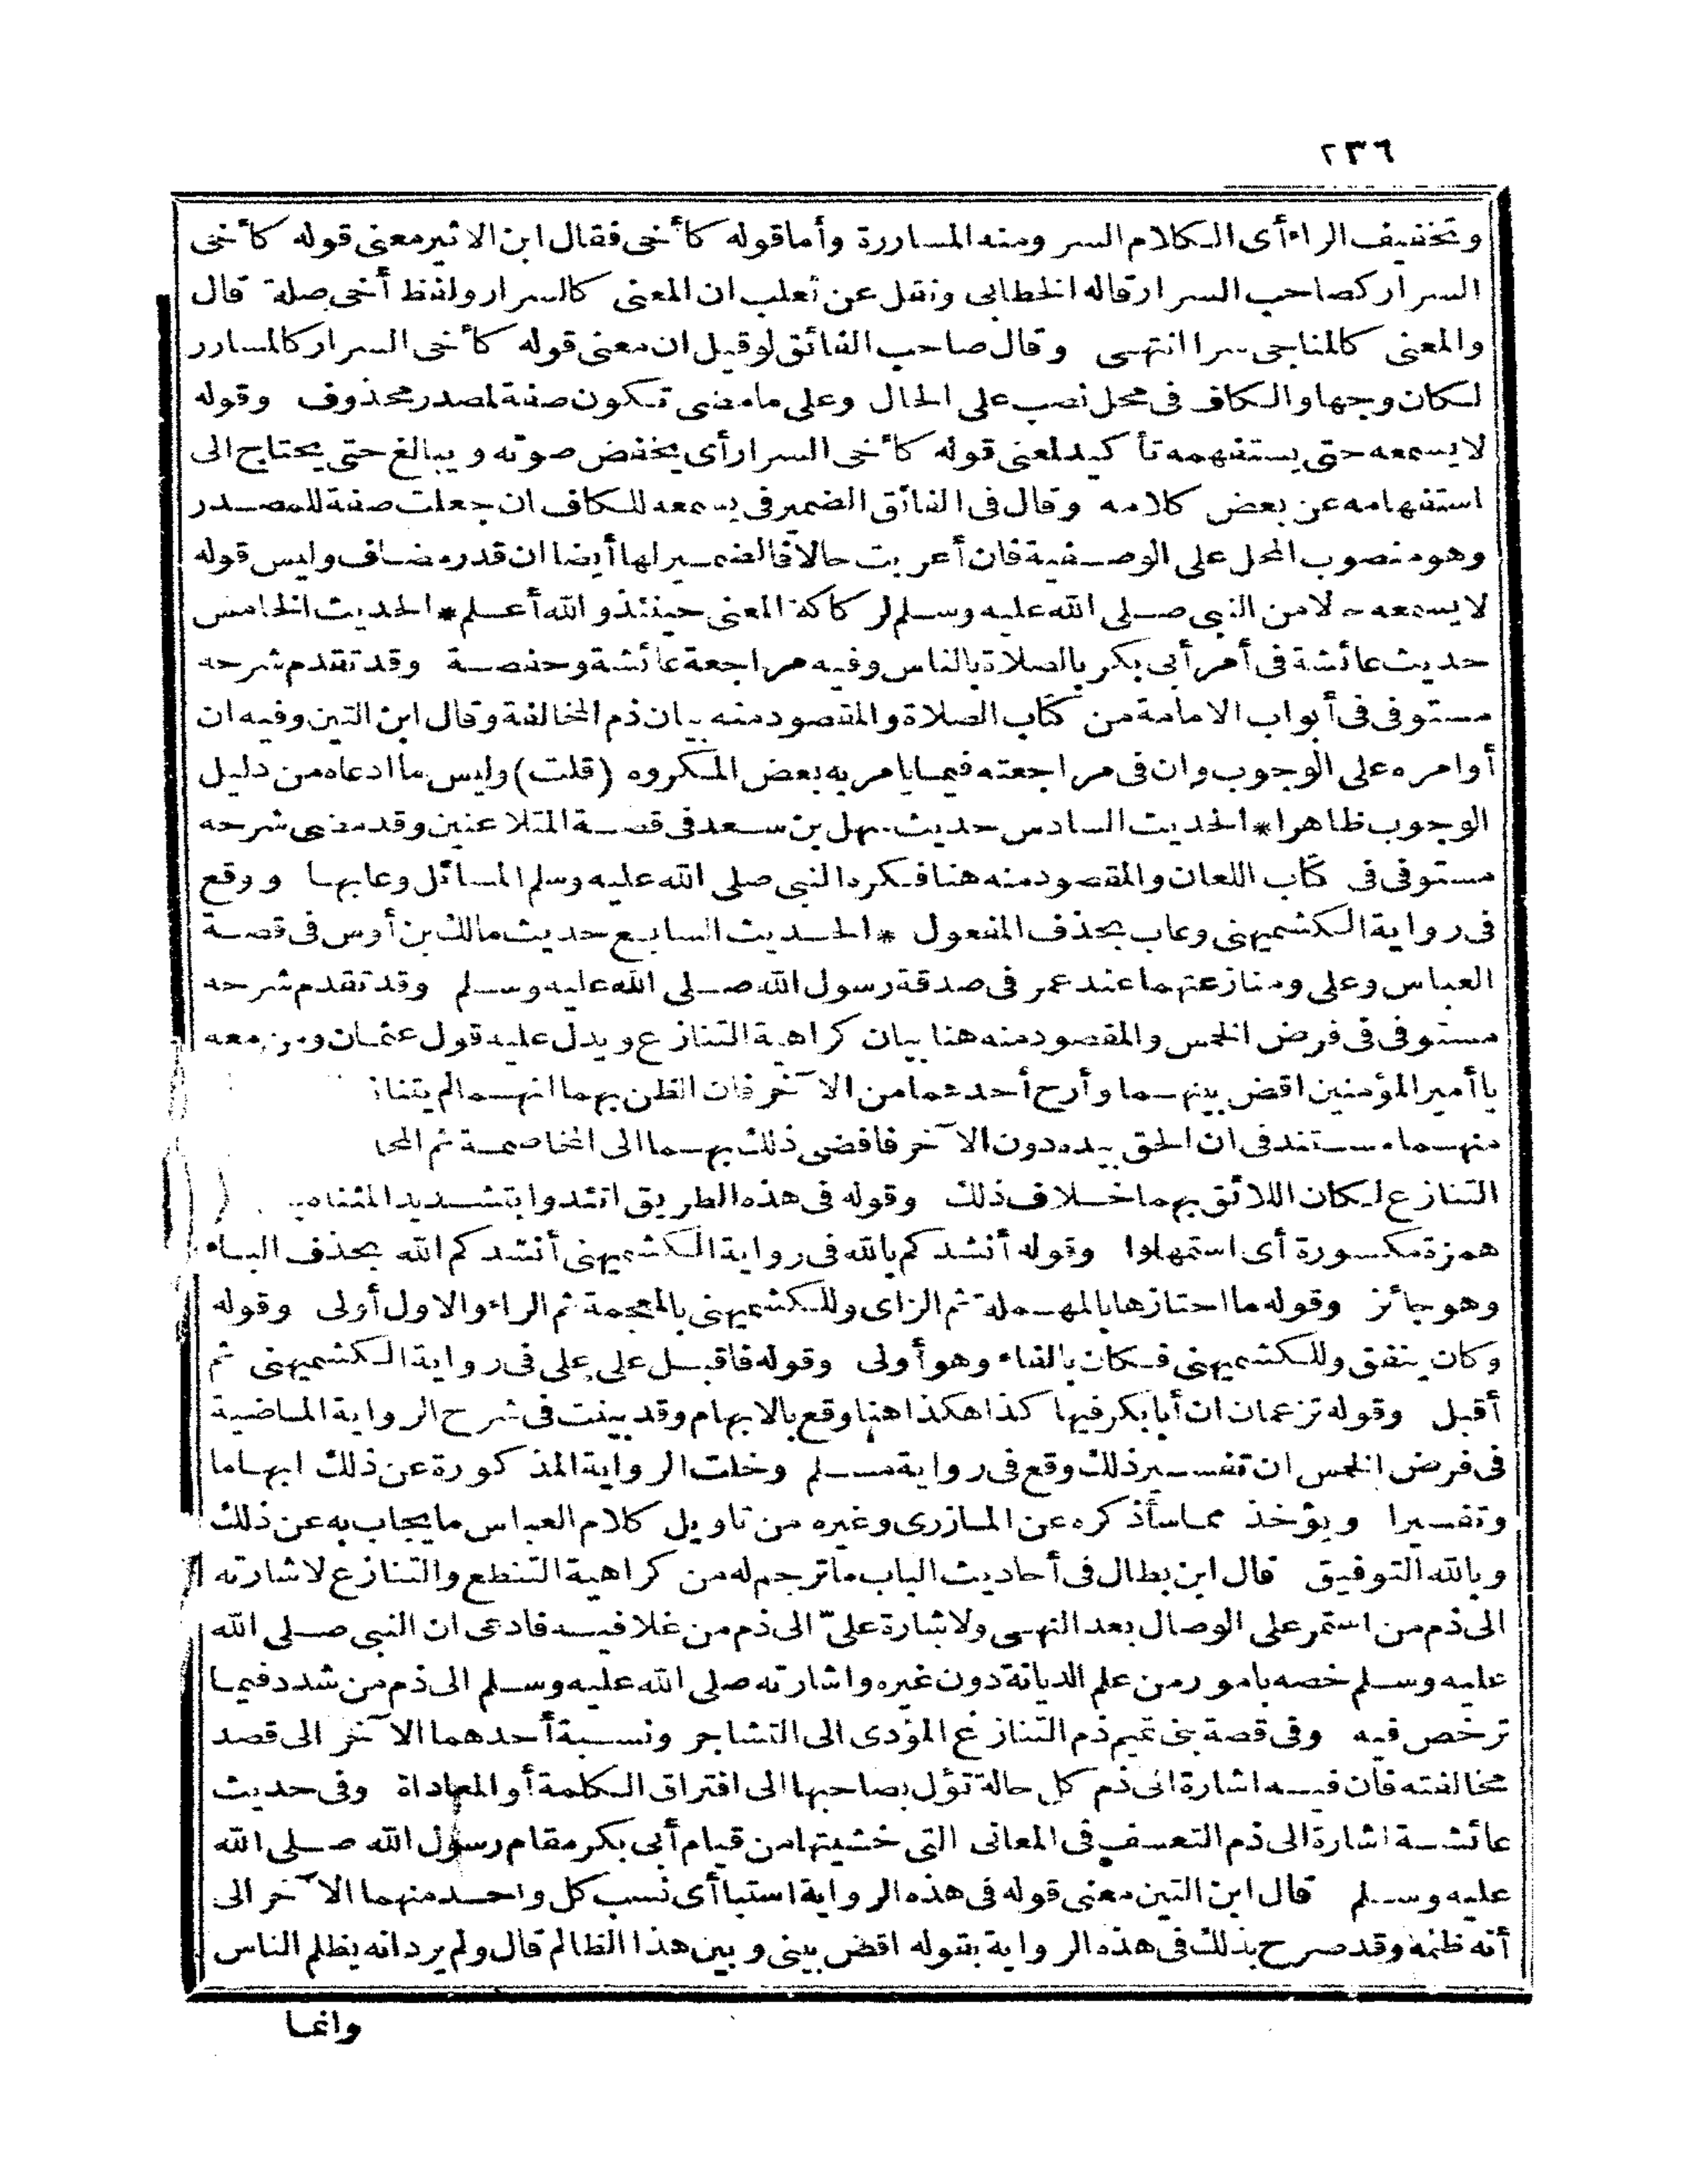 ٢٣٦
وتخفيف الراء أى الكلام السر ومنه المساررة وأما قوله كأخى فقال ابن الاثير معنى قوله كأخى
السرار كصاحب السرار قاله الخطابى ونقل عن ثعلب ان المعنى كالسرار ولفظ أخى صلة قال
والمعنى كالمناجى سرا انتهى وقال صاحب الفائق لو قيل ان معنى قوله كأخى السرار كالمسارر
لكان وجها والكاف فى محل نصب على الحال وعلى ما مضى تكون صفة لمصدر محذوف وقوله
لا يسمعه حتى يستفهمه تأكيد لمعنى قوله كأخى السرار أى يخفض صوته ويبالغ حتى يحتاج الى
استفهامه عن بعض كلامه وقال فى الفائق الضمير فى يسمعه للكاف ان جعلت صفة للمصدر
وهو منصوب المحل على الوصفية فان أعربت حالا فالضمير لها أيضا ان قدر مضاف وليس قوله
لا يسمعه حالا من النبى صلى الله عليه وسلم لركاكة المعنى حينئذ والله أعلم * الحديث الخامس
حديث عائشة فى أمر أبى بكر بالصلاة بالناس وفيه مراجعة عائشة وحفصة وقد تقدم شرحه
مستوفى فى أبواب الامامة من كتاب الصلاة والمقصود منه بيان ذم المخالفة وقال ابن التين وفيه ان
أوامره على الوجوب وان فى مراجعته فيما يامر به بعض المكروه (قلت) وليس ما ادعاه من دليل
الوجوب ظاهرا * الحديث السادس حديث سهل بن سعد فى قصة المتلاعنين وقد مضى شرحه
مستوفى فى كتاب اللعان والمقصود منه هنا فكره النبى صلى الله عليه وسلم المسائل وعابها ووقع
فى رواية الكشميهنى وعاب بحذف المفعول * الحديث السابع حديث مالك بن أوس فى قصة
العباس وعلى ومنازعتهما عند عمر فى صدقة رسول الله صلى الله عليه وسلم وقد تقدم شرحه
مستوفى فى فرض الخمس والمقصود منه هنا بيان كراهية التنازع ويدل عليه قول عثمان ومن معه
يا أمير المؤمنين اقض بينهما وأرح أحدهما من الآخر فان الظن بهما انهما لم يتناز
منهما مستند فى ان الحق بيده دون الآخر فافضى ذلك بهما الى المخاصمة ثم المحا
التنازع لكان اللائق بهما خلاف ذلك وقوله فى هذه الطريق اتئدوا بتشديد المثناه
همزة مكسورة أى استمهلوا وقوله أنشدكم بالله فى رواية الكشميهنى أنشدكم الله بحذف الباء
وهو جائز وقوله ما احتازها بالمهملة ثم الزاى وللكشميهنى بالمعجمة ثم الراء والاول أولى وقوله
وكان ينفق وللكشميهنى فكان بالفاء وهو أولى وقوله فاقبل على على فى رواية الكشميهنى ثم
أقبل وقوله تزعمان ان أبا بكر فيها كذا هكذا هنا وقع بالابهام وقد بينت فى شرح الرواية الماضية
فى فرض الخمس ان تفسير ذلك وقع فى رواية مسلم وخلت الرواية المذكورة عن ذلك ابهاما
وتفسيرا ويؤخذ مما سأذكره عن المازرى وغيره من تاويل كلام العباس ما يجاب به عن ذلك
وبالله التوفيق قال ابن بطال فى أحاديث الباب ما ترجم له من كراهية التنطع والتنازع لاشارته
الى ذم من استمر على الوصال بعد النهى ولاشارة علىّ الى ذم من غلا فيه فادعى ان النبى صلى الله
عليه وسلم خصه بامور من علم الديانة دون غيره واشارته صلى الله عليه وسلم الى ذم من شدد فيما
ترخص فيه وفى قصة بنى تميم ذم التنازع المؤدى الى التشاجر ونسبة أحدهما الآخر الى قصد
مخالفته فان فيه اشارة الى ذم كل حالة تؤل بصاحبها الى افتراق الكلمة أو المعاداة وفى حديث
عائشة اشارة الى ذم التعسف فى المعانى التى خشيتها من قيام أبى بكر مقام رسول الله صلى الله
عليه وسلم قال ابن التين معنى قوله فى هذه الرواية استبا أى نسب كل واحد منهما الآخر الى
أنه ظلمه وقد صرح بذلك فى هذه الرواية بقوله اقض بينى وبين هذا الظالم قال ولم يرد انه يظلم الناس
وانما